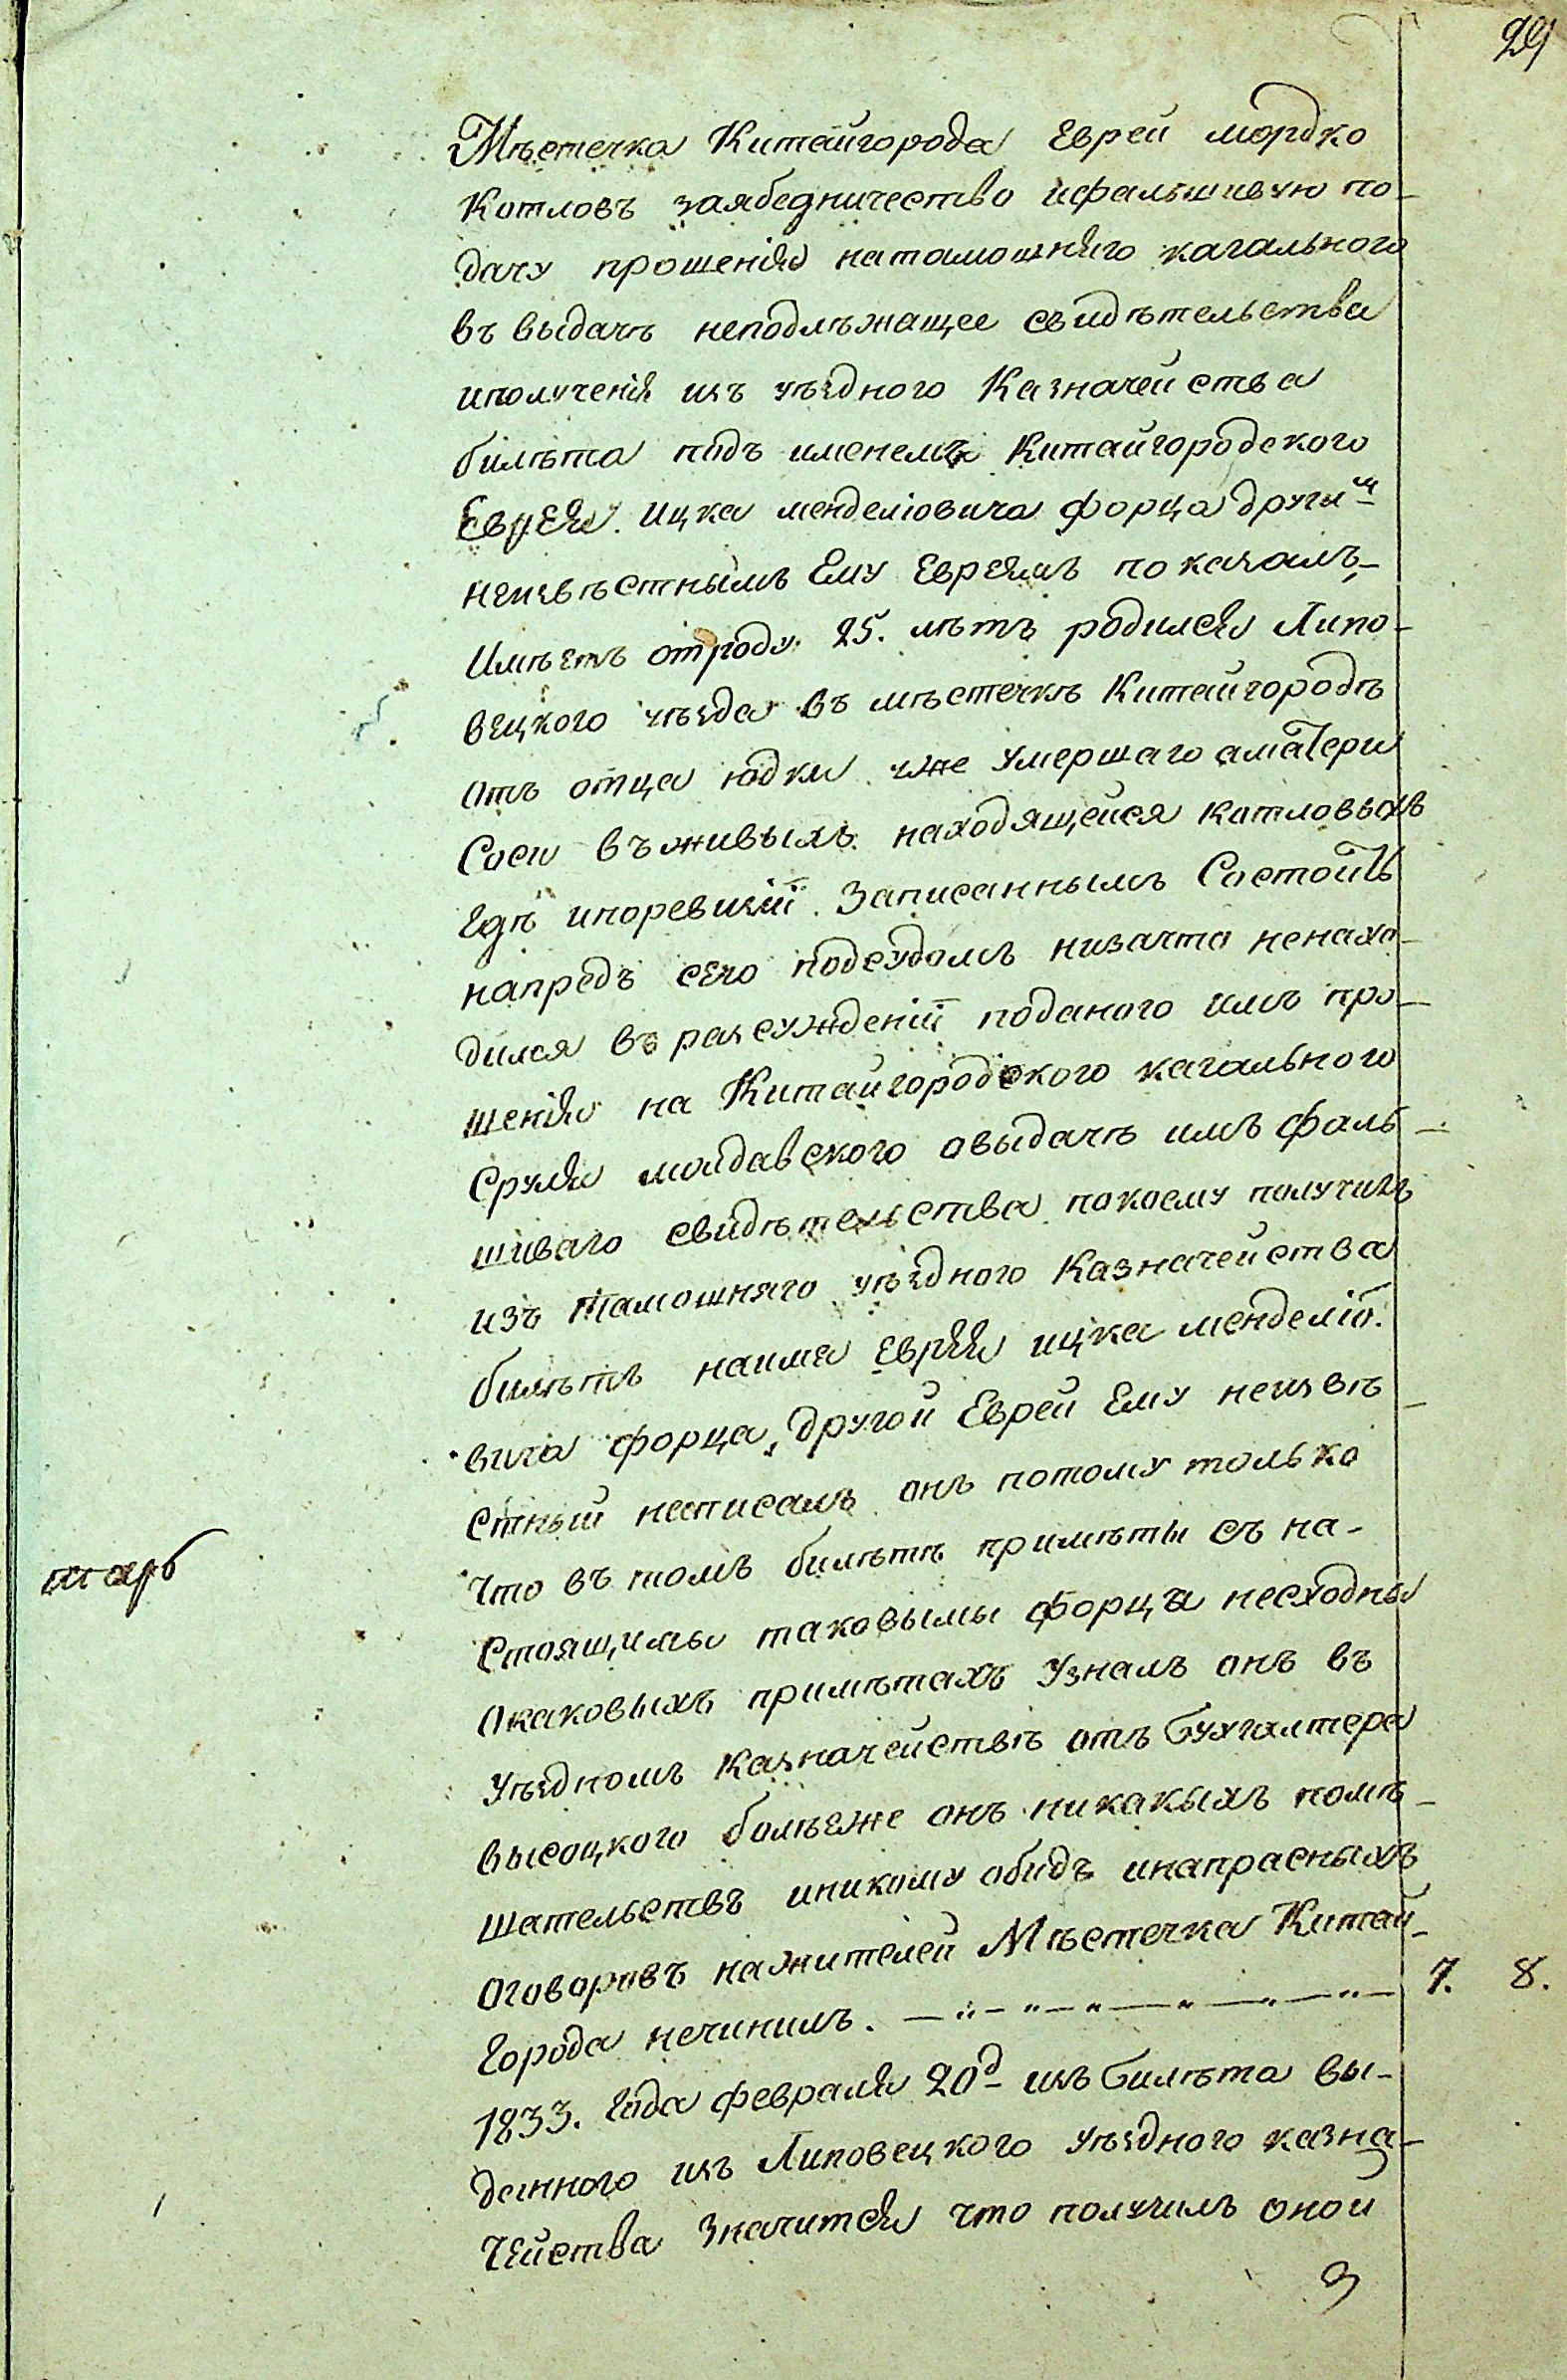 29
Мѣстечка Китайгорода Еврей мордко
Котловъ заябедничество ифальшивую по-
дачу прошенія натамошняго кагального
въ выдачѣ неподлѣжащее свидѣтельства
иполученія изъ уѣздного Казначейства
билѣта подъ именемъ Китайгородского
Еврея Ицка менделіовича форца други^м
неизвѣстнымъ Ему Евреямъ показалъ,-
Имѣетъ отроду 25. лѣтъ родился Липо-
вецкого уѣзда въ мѣстечкѣ Китайгородѣ
отъ отца юдки уже умершаго аматери
Соси въживыхъ находящейся Котловыхъ
Едѣ ипоревизіи Записаннымъ Состоитъ
напредъ сего подсудомъ низачто ненахо-
дился въ разсужденіи поданого имъ про-
шенія на Китайгородского кагального
Сруля молдавского овыдачѣ имъ фаль-
шиваго свидѣтельства покоему получилъ
изъ тамошняго уѣздного Казначейства
билѣтъ наимя Еврея ицка менделіо-
вича форца, другой Еврей Ему неизвѣ-
стный неписалъ онъ потому только
что въ томъ билѣтѣ примѣты съ на-
стоящимы таковымы форца несходны
Окаковыхъ примѣтахъ Узналъ онъ въ
Уѣздномъ Казначействѣ отъ бухгалтера
высоцкого болѣеже онъ никакыхъ помѣ-
шательствъ иникому обидъ инапрасныхъ
оговоровъ нажителей Мѣстечка Китай-
Города нечинилъ. 7. 8.
1833. Года февраля 20^д изъ билѣта вы-
данного изъ Липовецкого уѣздного казна-
чейства Значится что получилъ оной
тарь